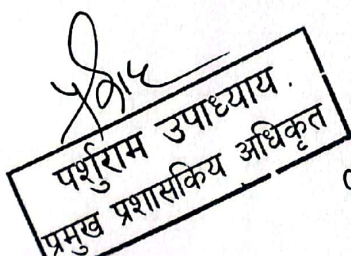 पर्शुराम उपाध्याय .
प्रमुख प्रशासकिय अधिकृत